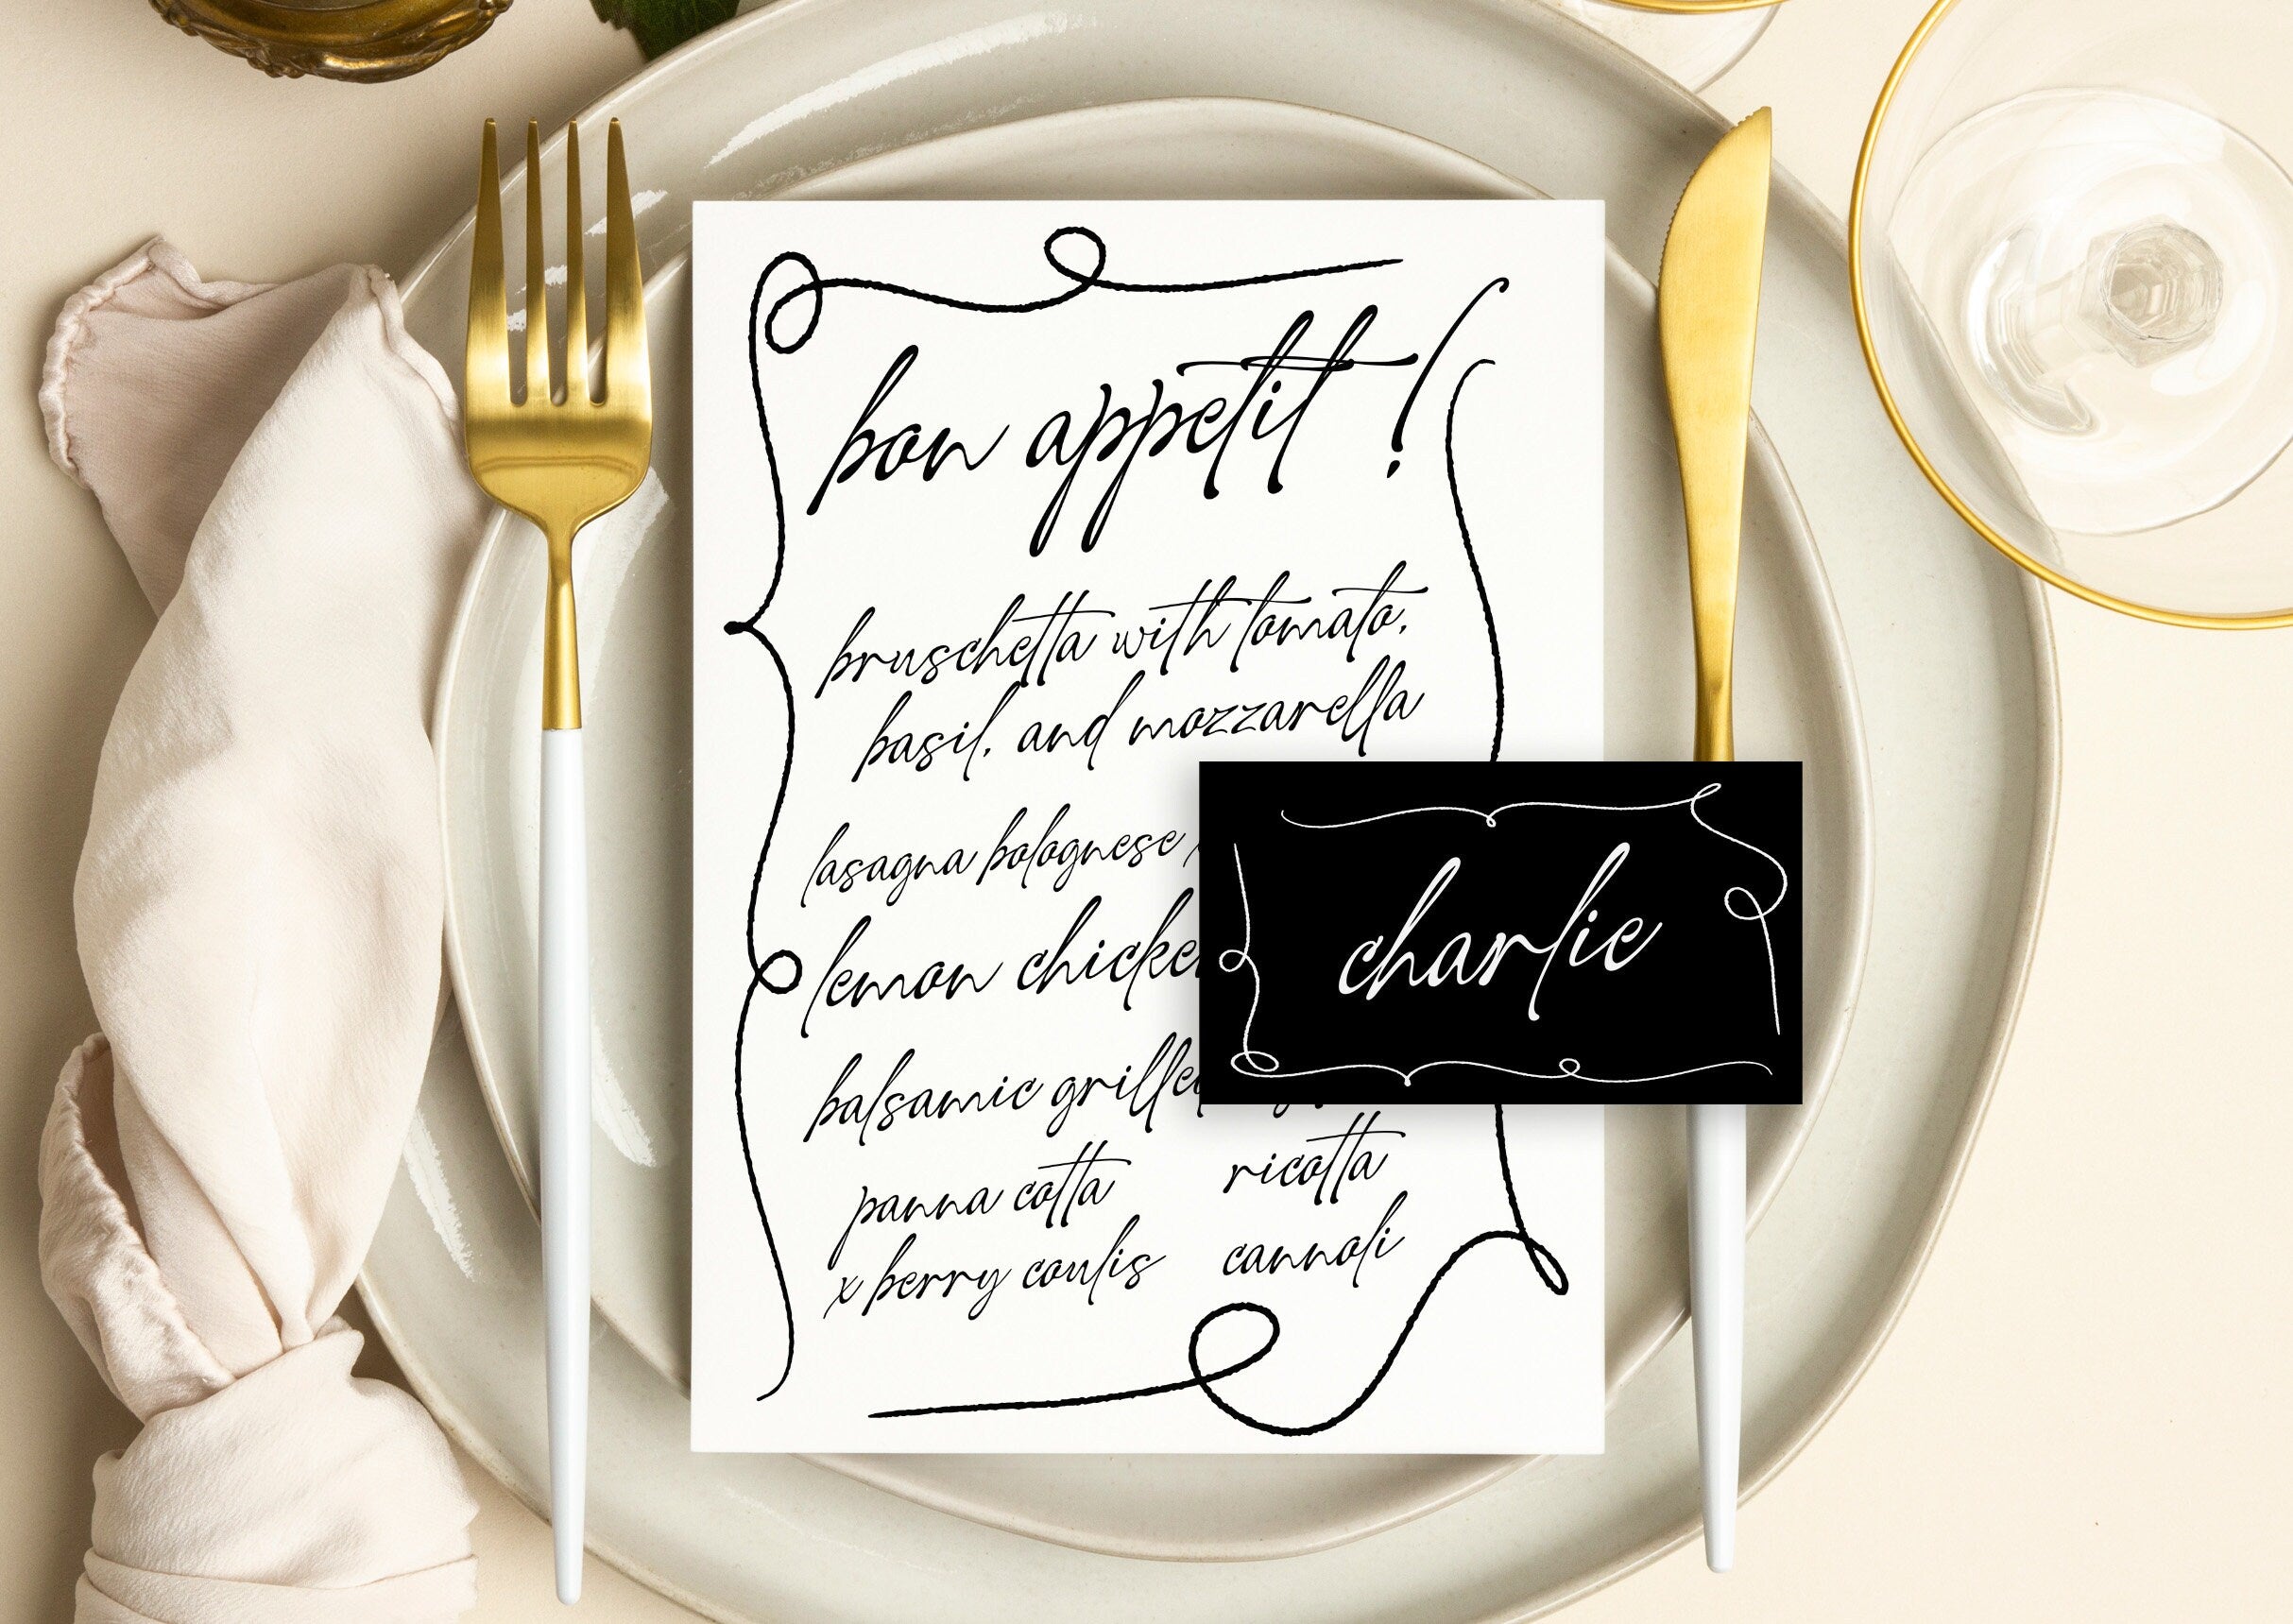 bon appetit !
bruschetta with tomato,
basil, and mozzarella
lasagna bolognese
lemon
balsamic
panna cotta
x berry coulis
ricotta
cannoli
charlie